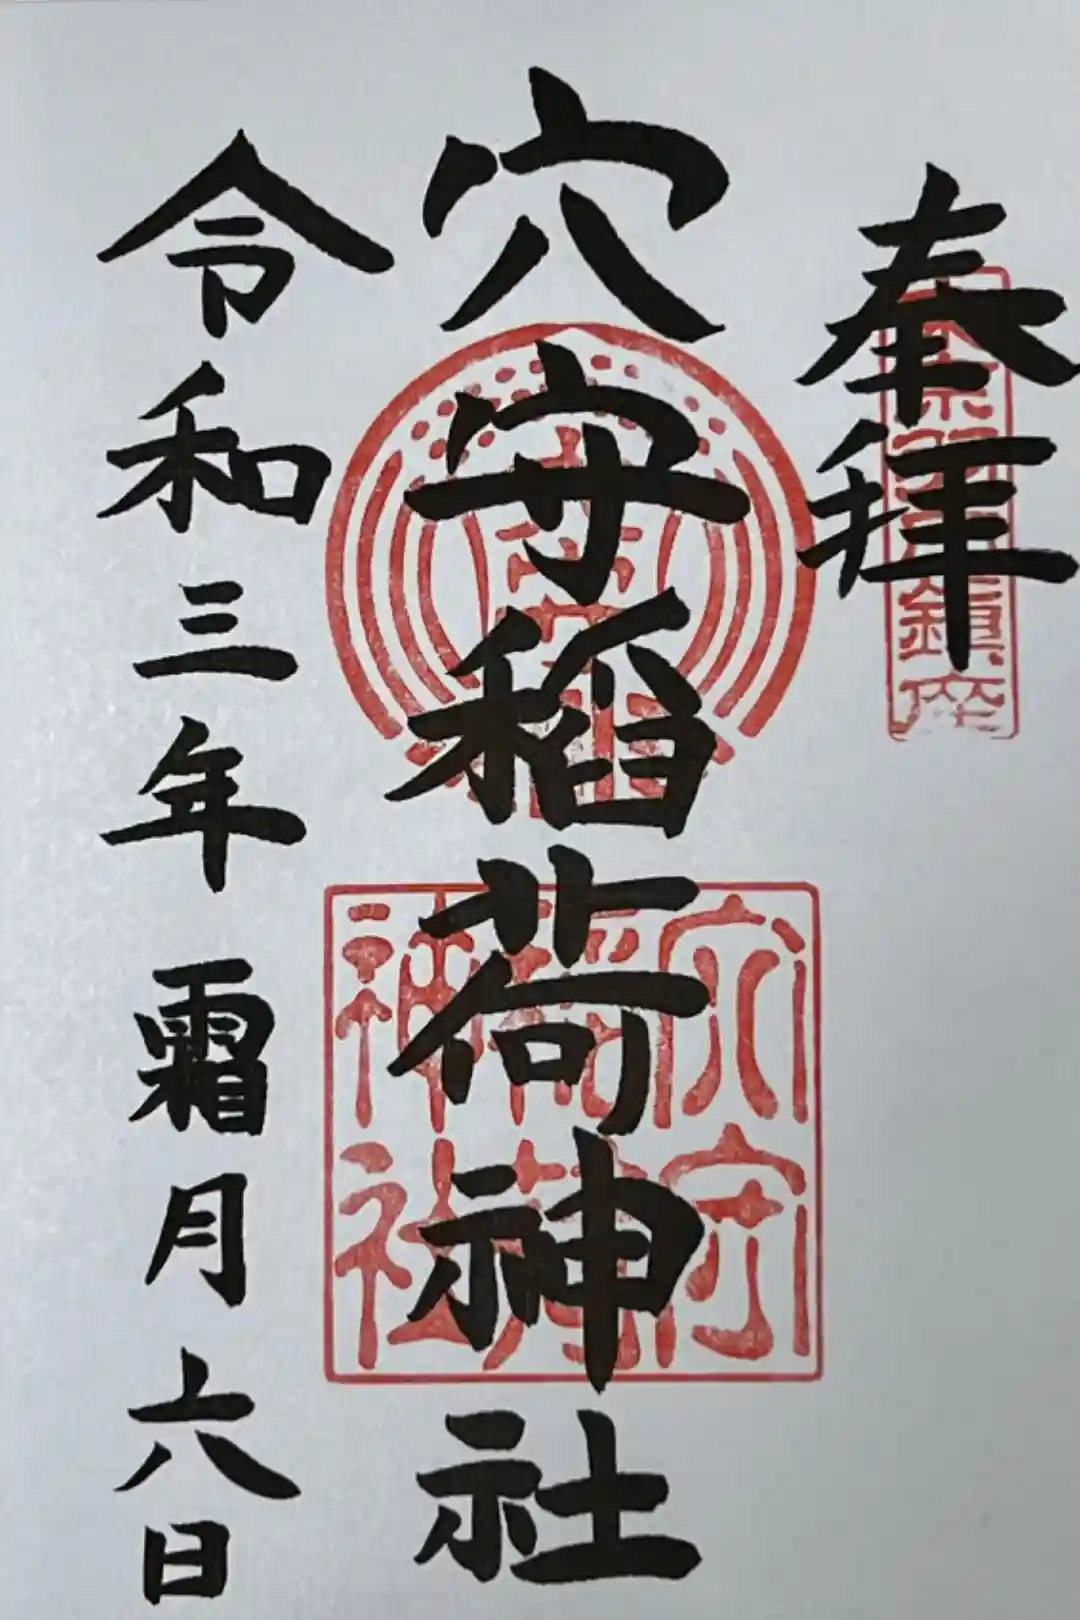 奉拝
穴守稲荷神社
令和三年霜月六日
穴守
稲荷
神社